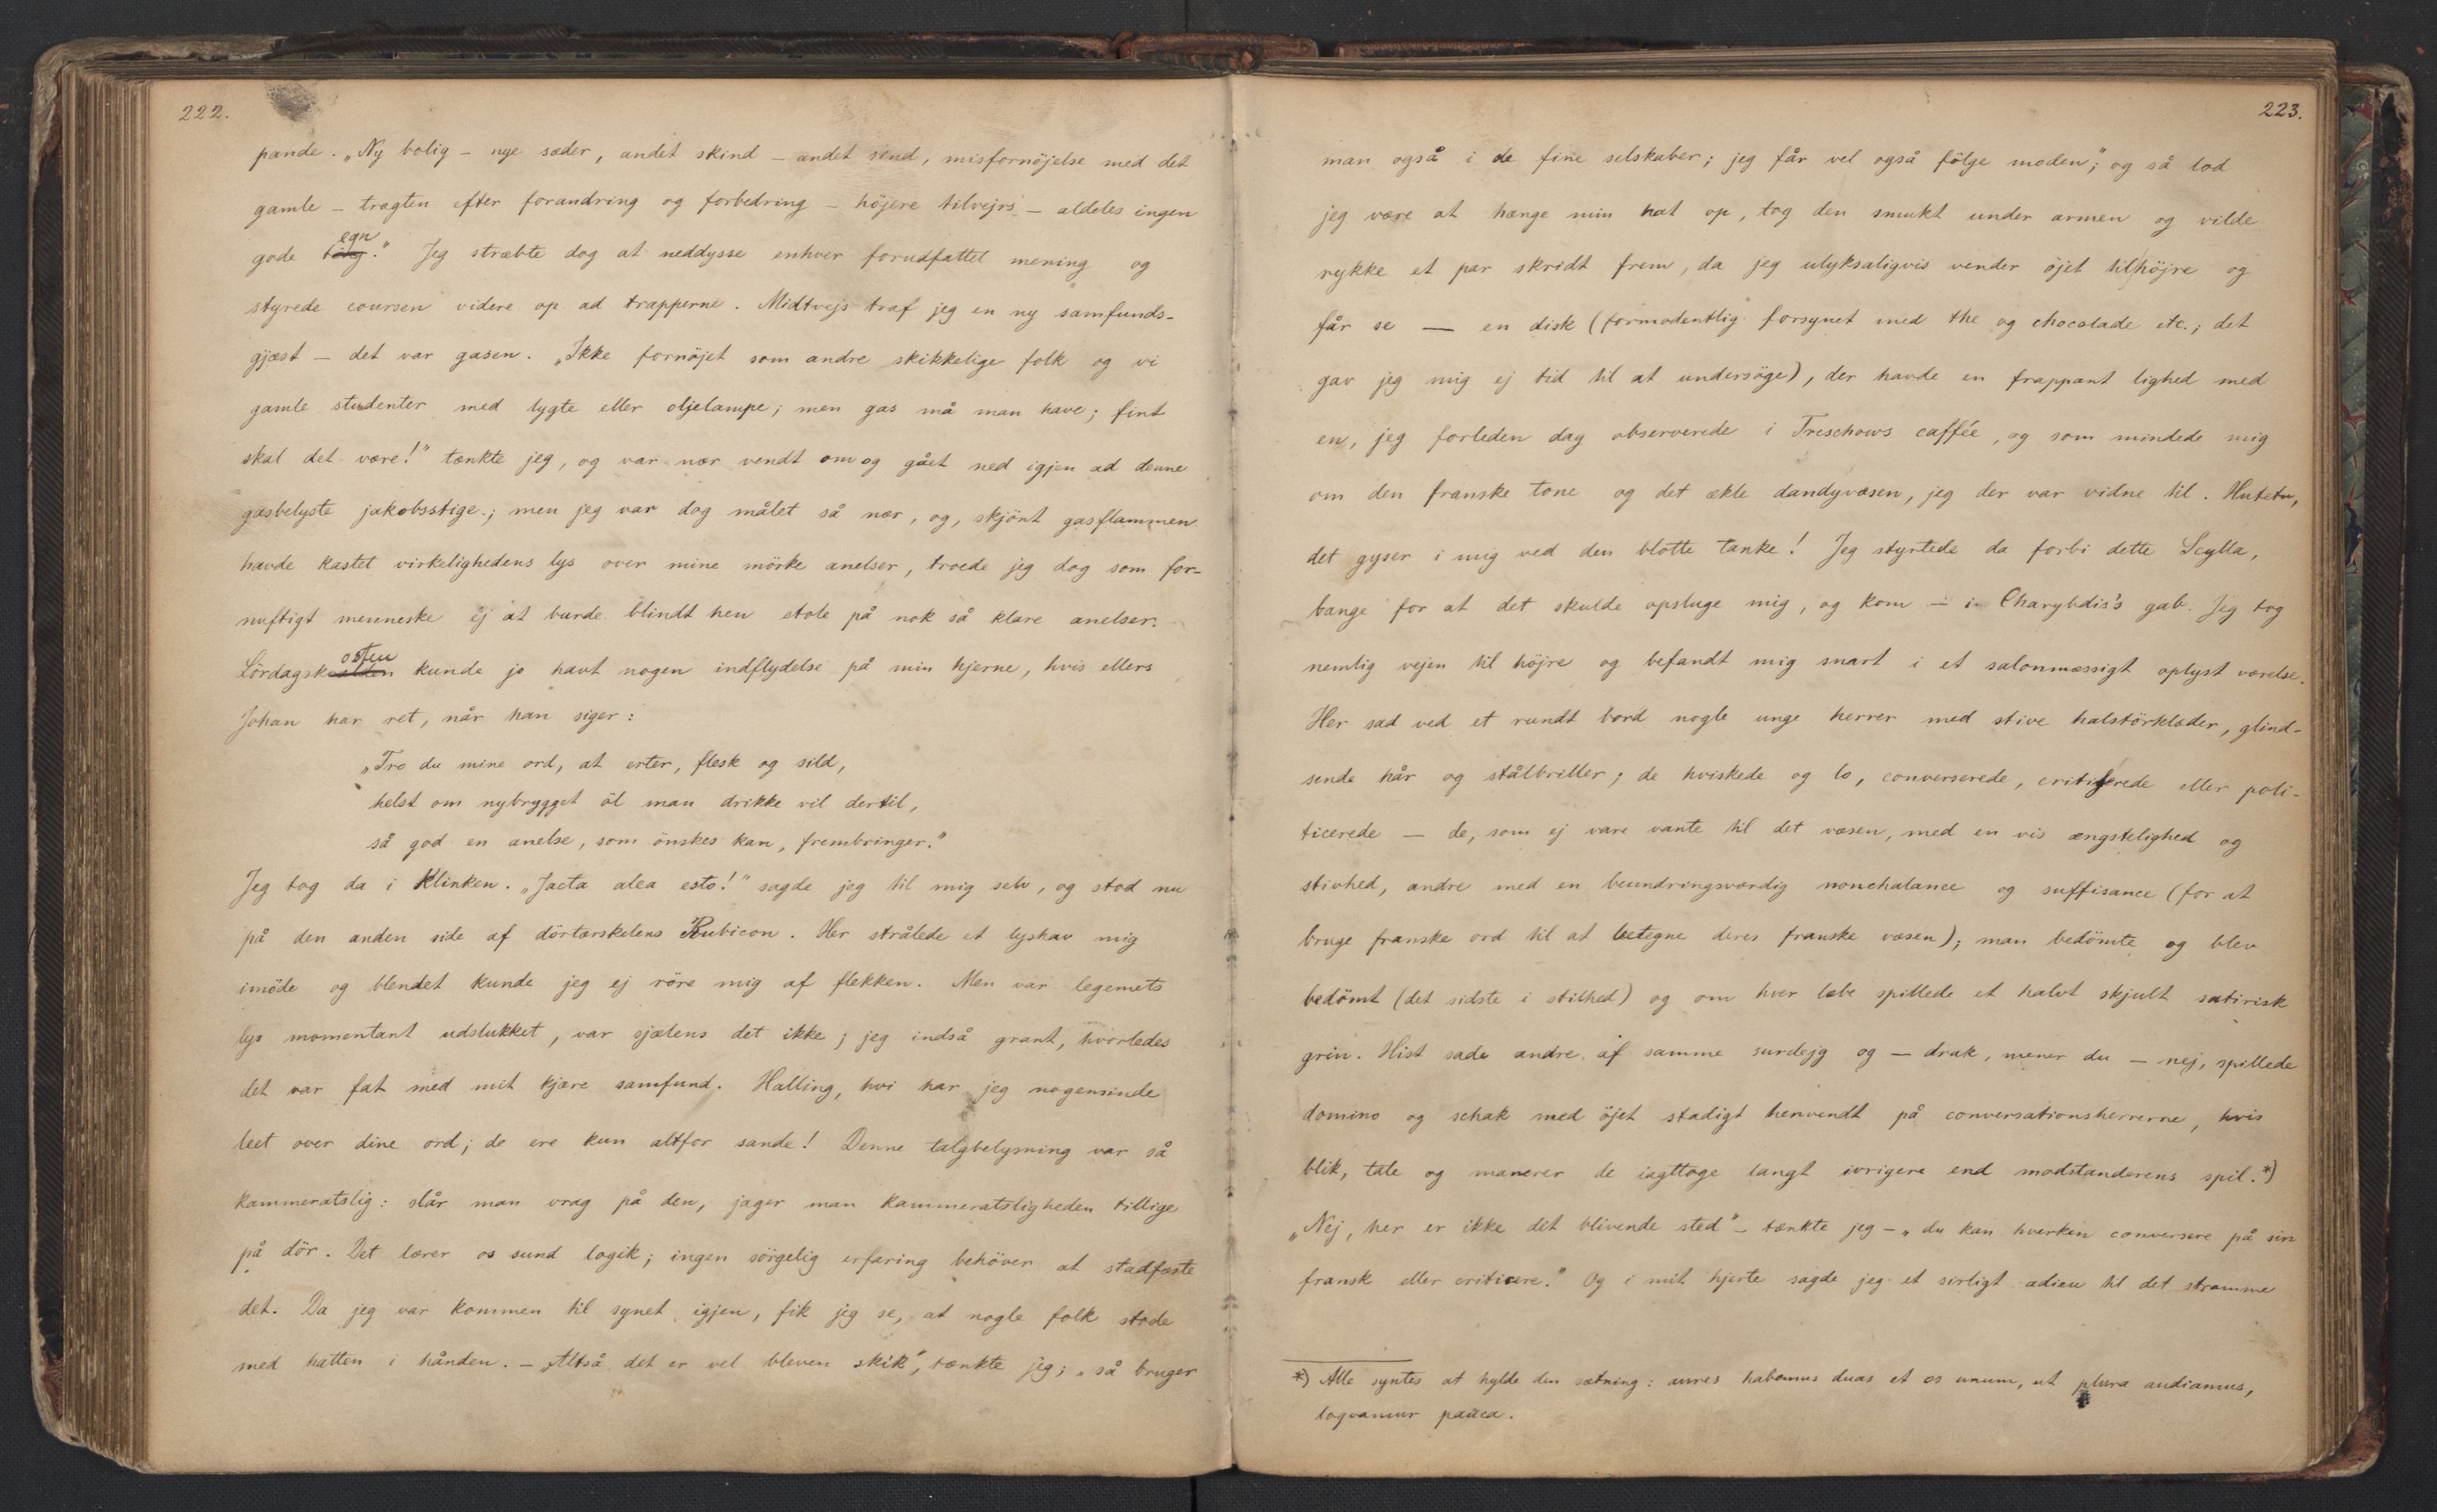 222.
pande. „Ny bolig – nye sæder, andet skind – andet sind, misfornöjelse med det
gamle – tragten efter forandring og forbedring – höjere tilvejrs – aldeles ingen
gode egn." Jeg stræbte dog at neddysse enhver forudfattet mening og
styrede coursen videre op ad trapperne. Midtvejs traf jeg en ny samfunds-
gjæst – det var gasen. „Ikke fornöjet som andre skikkelige folk og vi
gamle studenter med lygte eller oljelampe; men gas må man have; fint
skal det være!" tænkte jeg, og var nær vendt om og gået ned igjen ad denne
gasbelyste jakobsstige.; men jeg var dog målet så nær, og, skjönt gasflammen
havde kastet virkelighedens lys over mine mörke anelser, troede jeg dog som for-
nuftigt menneske ej at burde blindt hen stole på nok så klare anelser.
Lördagskosten kunde jo havt nogen indflydelse på min hjerne, hvis ellers
Johan har ret, når han siger:
„Tro du mine ord, at erter, flesk og sild,
helst om nybrygget öl man drikke vil dertil,
så god en anelse, som önskes kan, frembringer."
Jeg tog da i klinken. „Jacta alea esto!" sagde jeg til mig selv, og stod nu
på den anden side af dörtærskelens Rubicon. Her strålede et lyshav mig
imöde og blendet kunde jeg ej röre mig af flekken. Men var legemets
lys momentant udslukket, var sjælens det ikke; jeg indså grant, hvorledes
det var fat med mit kjære samfund. Halling, hvi har jeg nogensinde
leet over dine ord; de ere kun altfor sande! Denne talgbelysning var så
kammeratslig: slår man vrag på den, jager man kammeratsligheden tillige
på dör. Det lærer os sund logik; ingen sörgelig erfaring behöver at stadfæste
det. Da jeg var kommen til synet igjen, fik jeg se, at nogle folk stode
med hatten i hånden. – „Altså det er vel bleven skik", tænkte jeg; „så bruger
223.
man også i de fine selskaber; jeg får vel også fölge moden"; og så lod
jeg være at hænge min hat op, tog den smukt under armen og vilde
rykke et par skridt frem, da jeg ulyksaligvis vender öjet til höjre og
får se — en disk (formodentlig forsynet med the og chocolade etc.; det
gav jeg mig ej tid til at undersöge), der havde en frappant lighed med
en, jeg forleden dag observerede i Treschows caffée, og som mindede mig
om den franske tone og det ækle dandyvæsen, jeg der var vidne til. Hutetu,
det gyser i mig ved den blotte tanke! Jeg styrtede da forbi dette Scylla,
bange for at det skulde opsluge mig, og kom – i Charybdis's gab. Jeg tog
nemlig vejen til höjre og befandt mig snart i et salonmæssigt oplyst værelse.
Her sad ved et rundt bord nogle unge herrer med stive halstörklæder, glind-
sende hår og stålbriller; de hviskede og lo, converserede, critiserede eller poli-
ticerede — de, som ej vare vante til det væsen, med en vis ængstelighed og
stivhed, andre med en beundringsværdig nonchalance og suffisance (for at
bruge franske ord til at betegne deres franske væsen); man bedömte og blev
bedömt (det sidste i stilhed) og om hver læbe spillede et halvt skjult satirisk
grin. Hist sade andre af samme surdejg og — drak, mener du — nej, spillede
domino og schak med öjet stadigt henvendt på conversationsherrerne, hvis
blik, tale og manerer de iagttoge langt ivrigere end modstanderens spil.*)
„Nej, her er ikke det blivende sted" – tænkte jeg – „du kan hverken conversere på sin
fransk eller criticere." Og i mit hjerte sagde jeg et sirligt adieu til det stramme
*) Alle syntes at hylde den sætning: aures habemus duas et os unum, ut plura audiamus,
loqvamur pauca.